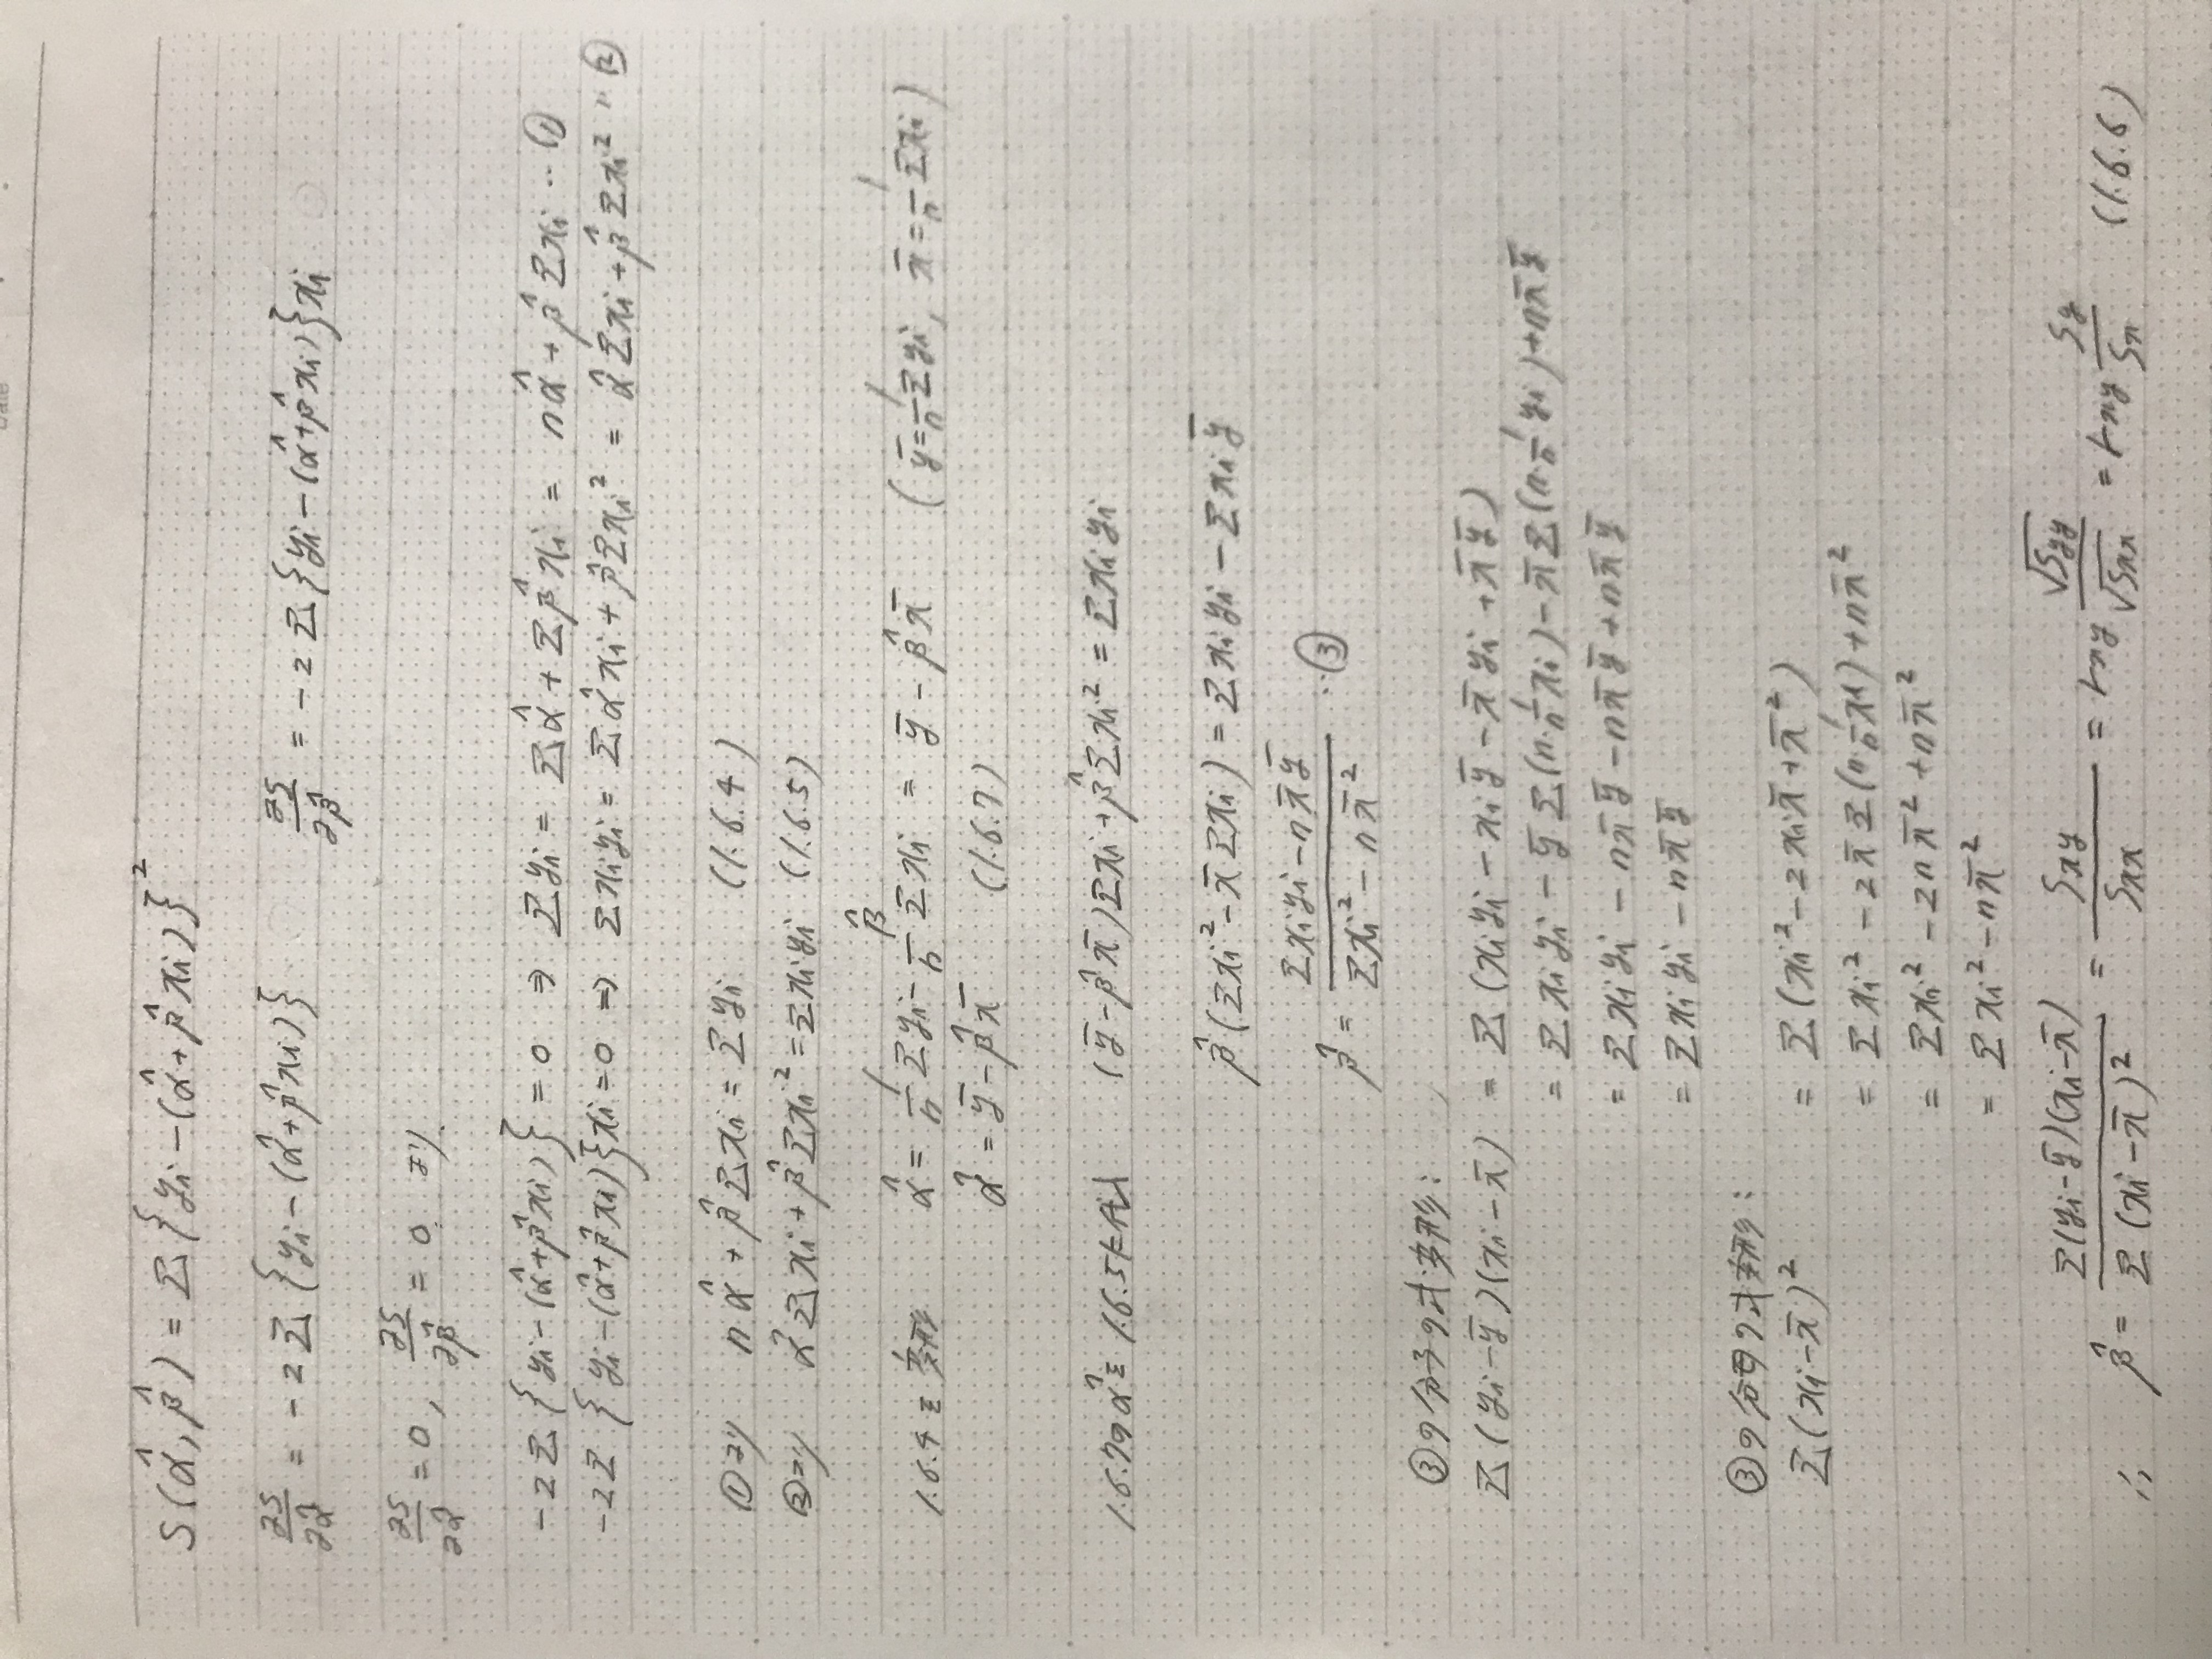 Date
S(α̂, β̂) = Σ{yi-(α̂+β̂xi)}²
∂S/∂α̂ = -2Σ{yi-(α̂+β̂xi)}   ∂S/∂β̂ = -2Σ{yi-(α̂+β̂xi)}xi
∂S/∂α̂ = 0, ∂S/∂β̂ = 0 より.
-2Σ{yi-(α̂+β̂xi)} = 0 ⇒ Σyi = Σα̂+Σβ̂xi = nα̂+β̂Σxi … ①
-2Σ{yi-(α̂+β̂xi)}xi = 0 ⇒ Σxiyi = Σα̂xi+β̂Σxi² = α̂Σxi+β̂Σxi² … ②
①より nα̂+β̂Σxi = Σyi (1.6.4)
②より α̂Σxi+β̂Σxi² = Σxiyi (1.6.5)
1.6.4を変形 α̂ = 1/n Σyi - β̂/n Σxi = ȳ - β̂x̄ (ȳ = 1/n Σyi, x̄ = 1/n Σxi)
α̂ = ȳ - β̂x̄ (1.6.7)
1.6.7のα̂を1.6.5に代入 (ȳ-β̂x̄)Σxi+β̂Σxi² = Σxiyi
β̂(Σxi²-x̄Σxi) = Σxiyi - Σxiȳ
β̂ = (Σxiyi-nx̄ȳ)/(Σxi²-nx̄²) … ③
③の分子の式変形:
Σ(yi-ȳ)(xi-x̄) = Σ(xiyi-xiȳ-x̄yi+x̄ȳ)
= Σxiyi - ȳΣ(n·1/n xi) - x̄Σ(n·1/n yi)+nx̄ȳ
= Σxiyi - nx̄ȳ - nx̄ȳ + nx̄ȳ
= Σxiyi - nx̄ȳ
③の分母の式変形:
Σ(xi-x̄)² = Σ(xi²-2xix̄+x̄²)
= Σxi² - 2x̄Σ(n·1/n xi)+nx̄²
= Σxi² - 2nx̄² + nx̄²
= Σxi² - nx̄²
∴ β̂ = Σ(yi-ȳ)(xi-x̄)/Σ(xi-x̄)² = Sxy/Sxx = rxy √Syy/√Sxx = rxy Sy/Sx (1.6.6)